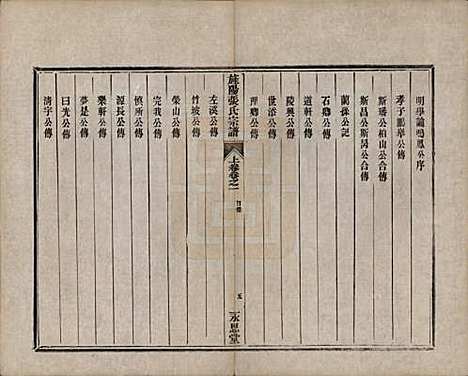 明學諭鳴鳳公序
孝子鵬舉公傳
斯璠公柏山公合傳
斯昌公斯禺公合傳
蘭孫公記
石磯公傳
道軒公傳
陵輿公傳
世滔公傳
理磯公傳
旌陽張氏宗譜
上卷卷之一
目錄
五
永思堂
左溪公傳
竹坡公傳
榮山公傳
完我公傳
慎所公傳
源長公傳
樂軒公傳
夢是公傳
曰光公傳
清宇公傳